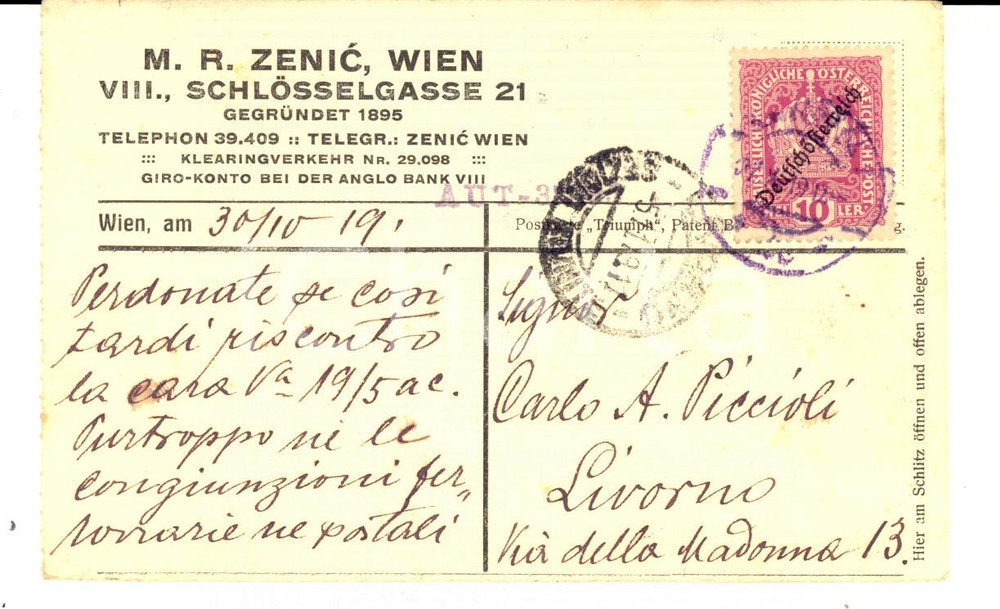 M. R. ZENIĆ, WIEN
VIII., SCHLÖSSELGASSE 21
GEGRÜNDET 1895
TELEPHON 39.409 :: TELEGR.: ZENIĆ WIEN
::: KLEARINGVERKEHR NR. 29.098 :::
GIRO-KONTO BEI DER ANGLO BANK VIII
AUT-3
Wien, am 30/10 19
Perdonate se così
tardi riscontro
la cara Va 19/5 ac.
Purtroppo nè le
congiunzioni fer„
roviarie ne postali
KAISERLICHE KÖNIGLICHE ÖSTERREICHISCHE POST
Deutschösterreich
10 HELLER
"Triumph", Patent
Signor
Carlo A. Piccioli
Livorno
Via della Madonna 13.
Hier am Schlitz öffnen und offen ablegen.